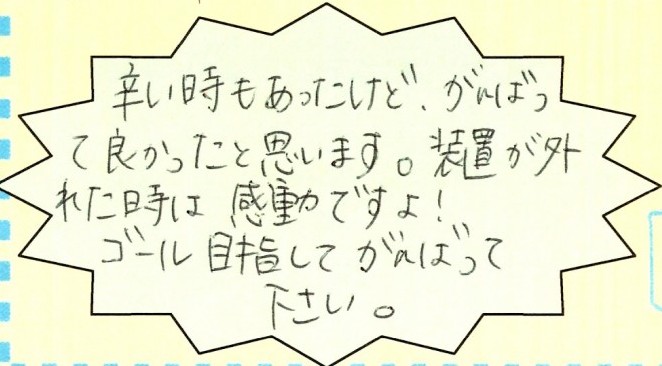 辛い時もあったけど、がんばっ
て良かったと思います。装置が外
れた時は感動ですよ!
ゴール目指してがんばって
下さい。